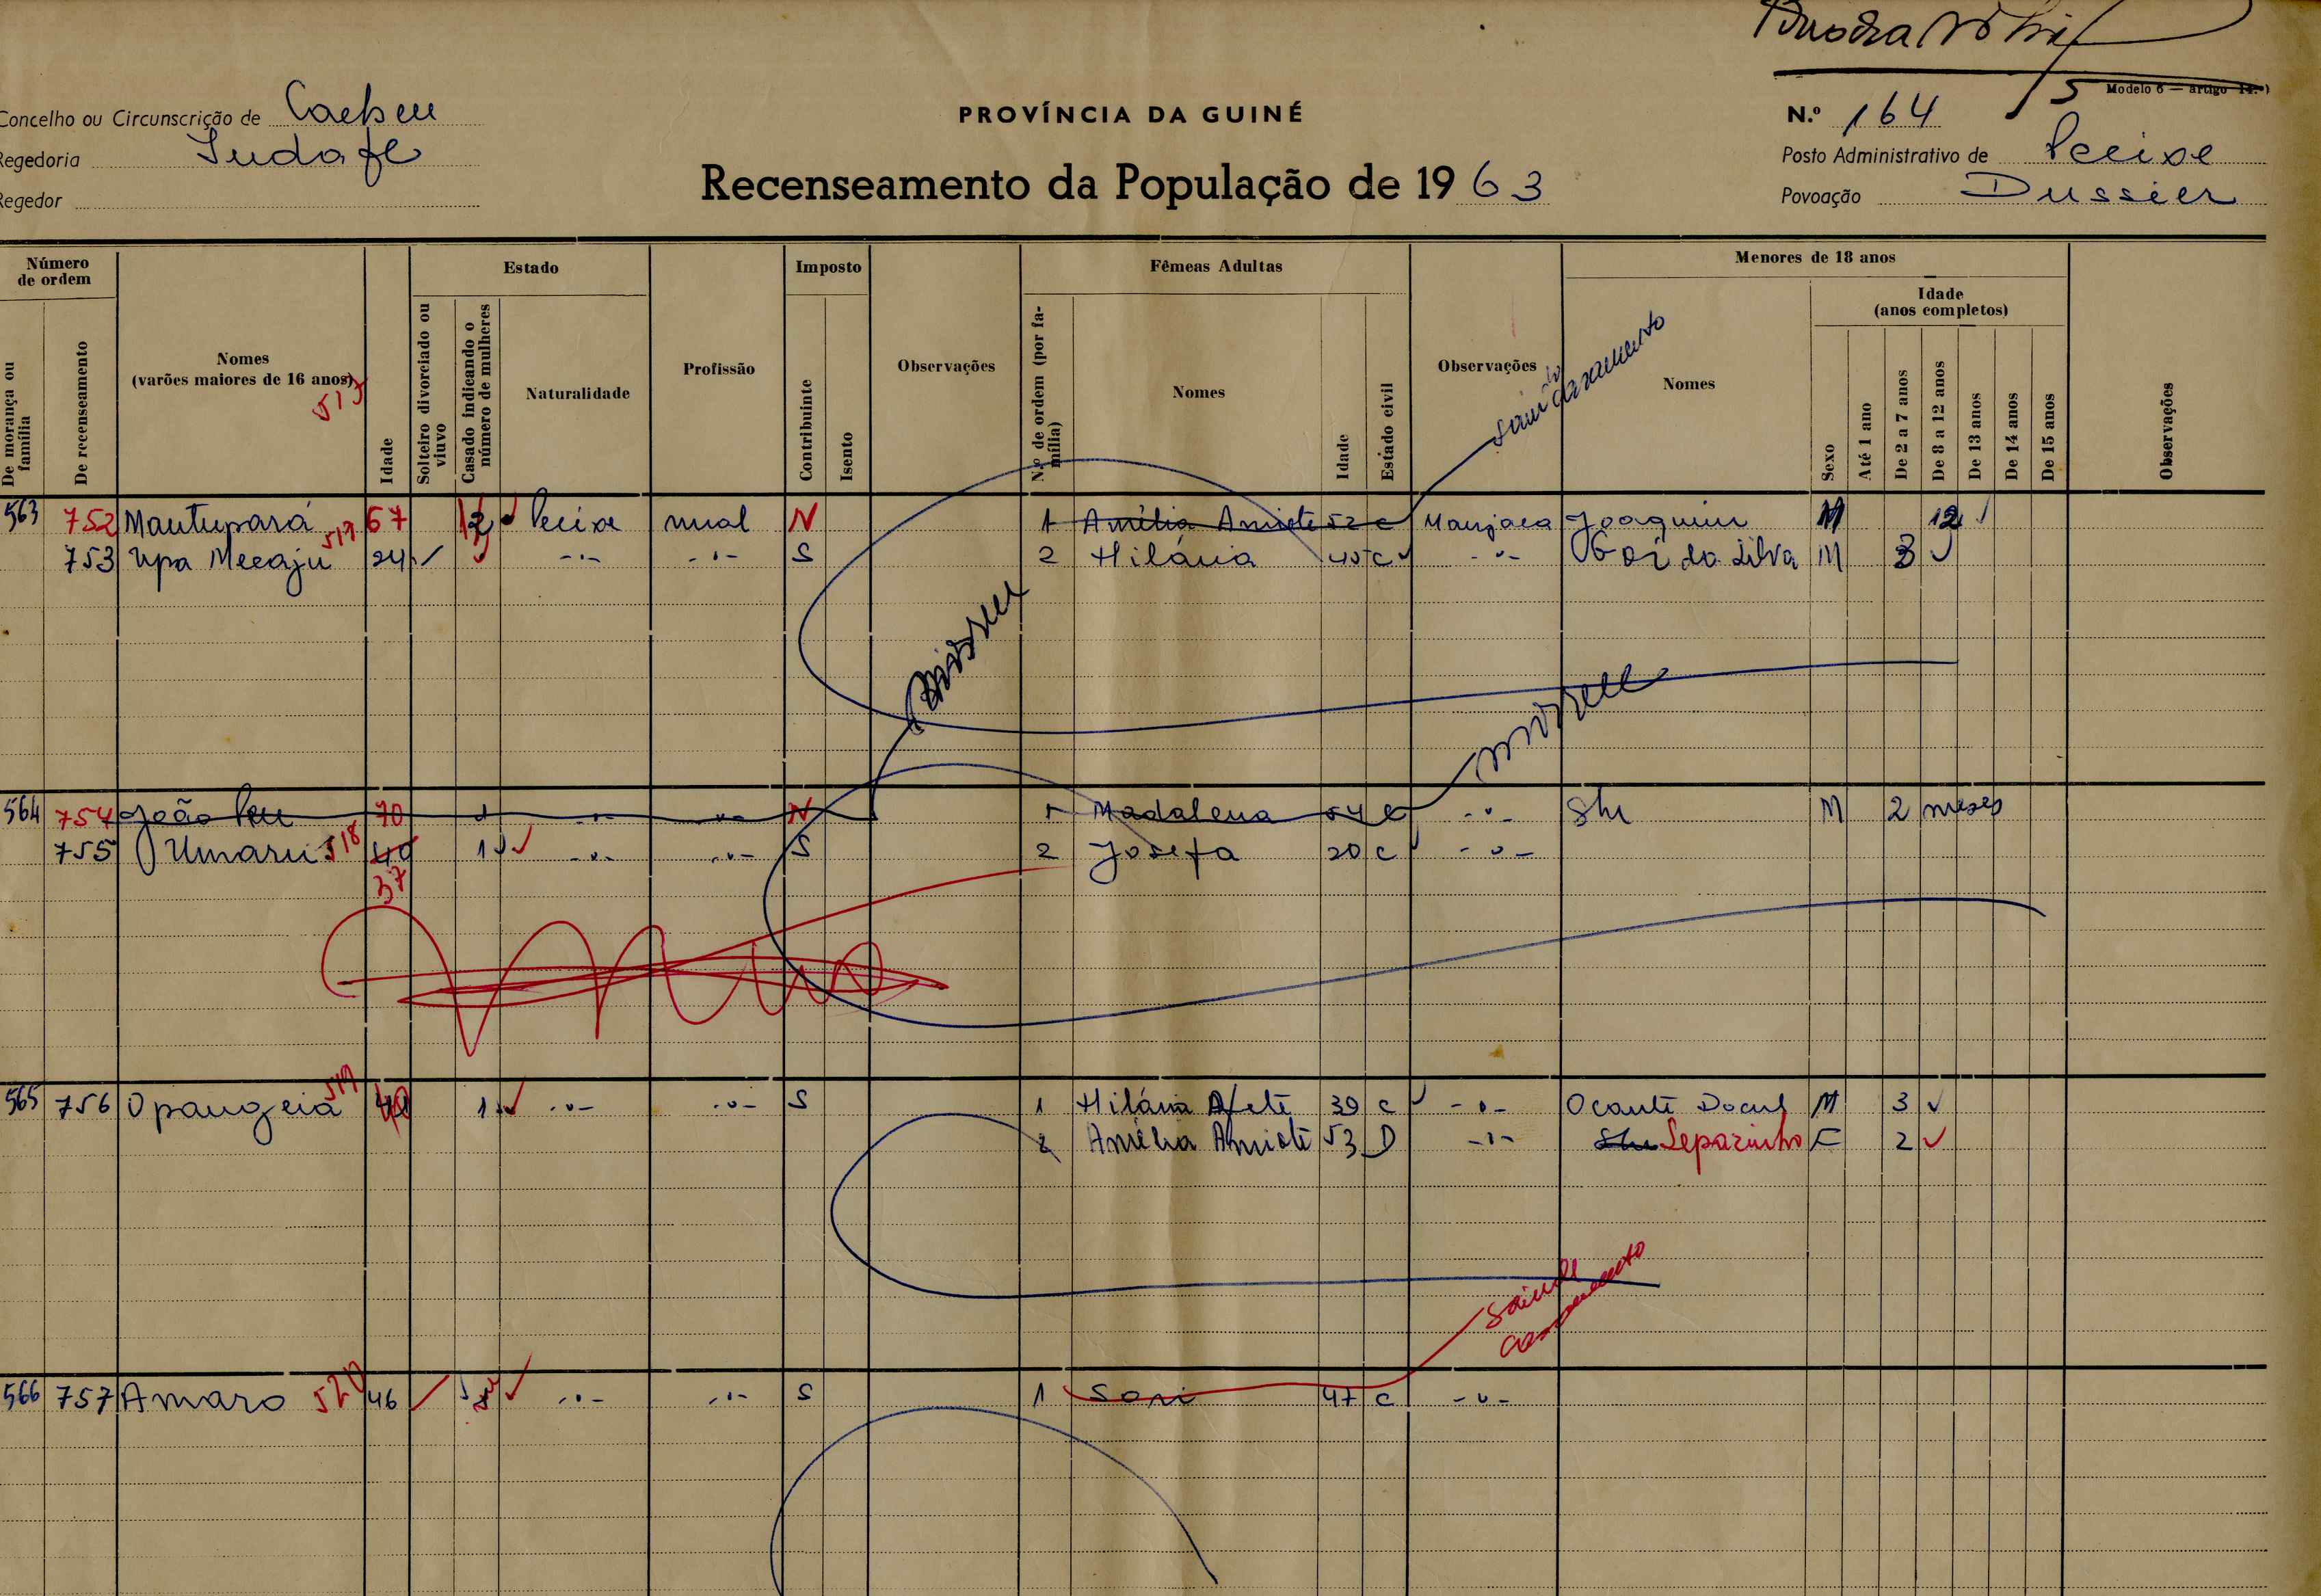 Modelo 6 — artigo 14.º)
Concelho ou Circunscrição de Cacheu
PROVÍNCIA DA GUINÉ
N.º 164
Regedoria
Posto Administrativo de Pecixe
Recenseamento da População de 1963
Regedor
Povoação Dussier
Número de ordem
Estado
Imposto
Fêmeas Adultas
Menores de 18 anos
Idade (anos completos)
De morança ou família
De recenseamento
Nomes (varões maiores de 16 anos)
Idade
Solteiro divorciado ou viuvo
Casado indicando o número de mulheres
Naturalidade
Profissão
Contribuinte
Isento
Observações
N.º de ordem (por família)
Nomes
Idade
Estado civil
Observações
Nomes
Sexo
Até 1 ano
De 2 a 7 anos
De 8 a 12 anos
De 13 anos
De 14 anos
De 15 anos
Observações
saiu casamento
563 752 Mantupará 67 Pecixe rural N 1 Amélia Amiote 52 c Manjaca Joaquim M 12
753 Upa Mecaju 24 -"- -"- S 2 Hilária 45 c -"- da Silva M 3
morreu
morreu
564 754 João Peu 70 1 -"- -"- N 1 Madalena 54 c -"- Shu M 2 meses
755 Umaru 518 40 1 -"- -"- S 2 Josefa 20 c -"-
37
565 756 Opangeia 519 40 1 -"- -"- S 1 Hilária Afete 39 c -"- Ocante Docul M 3
2 Amélia Amiote 53 D -"- Shu Separinho F 2
saiu
casamento
566 757 Amaro 520 46 -"- -"- S 1 Sori 47 c -"-